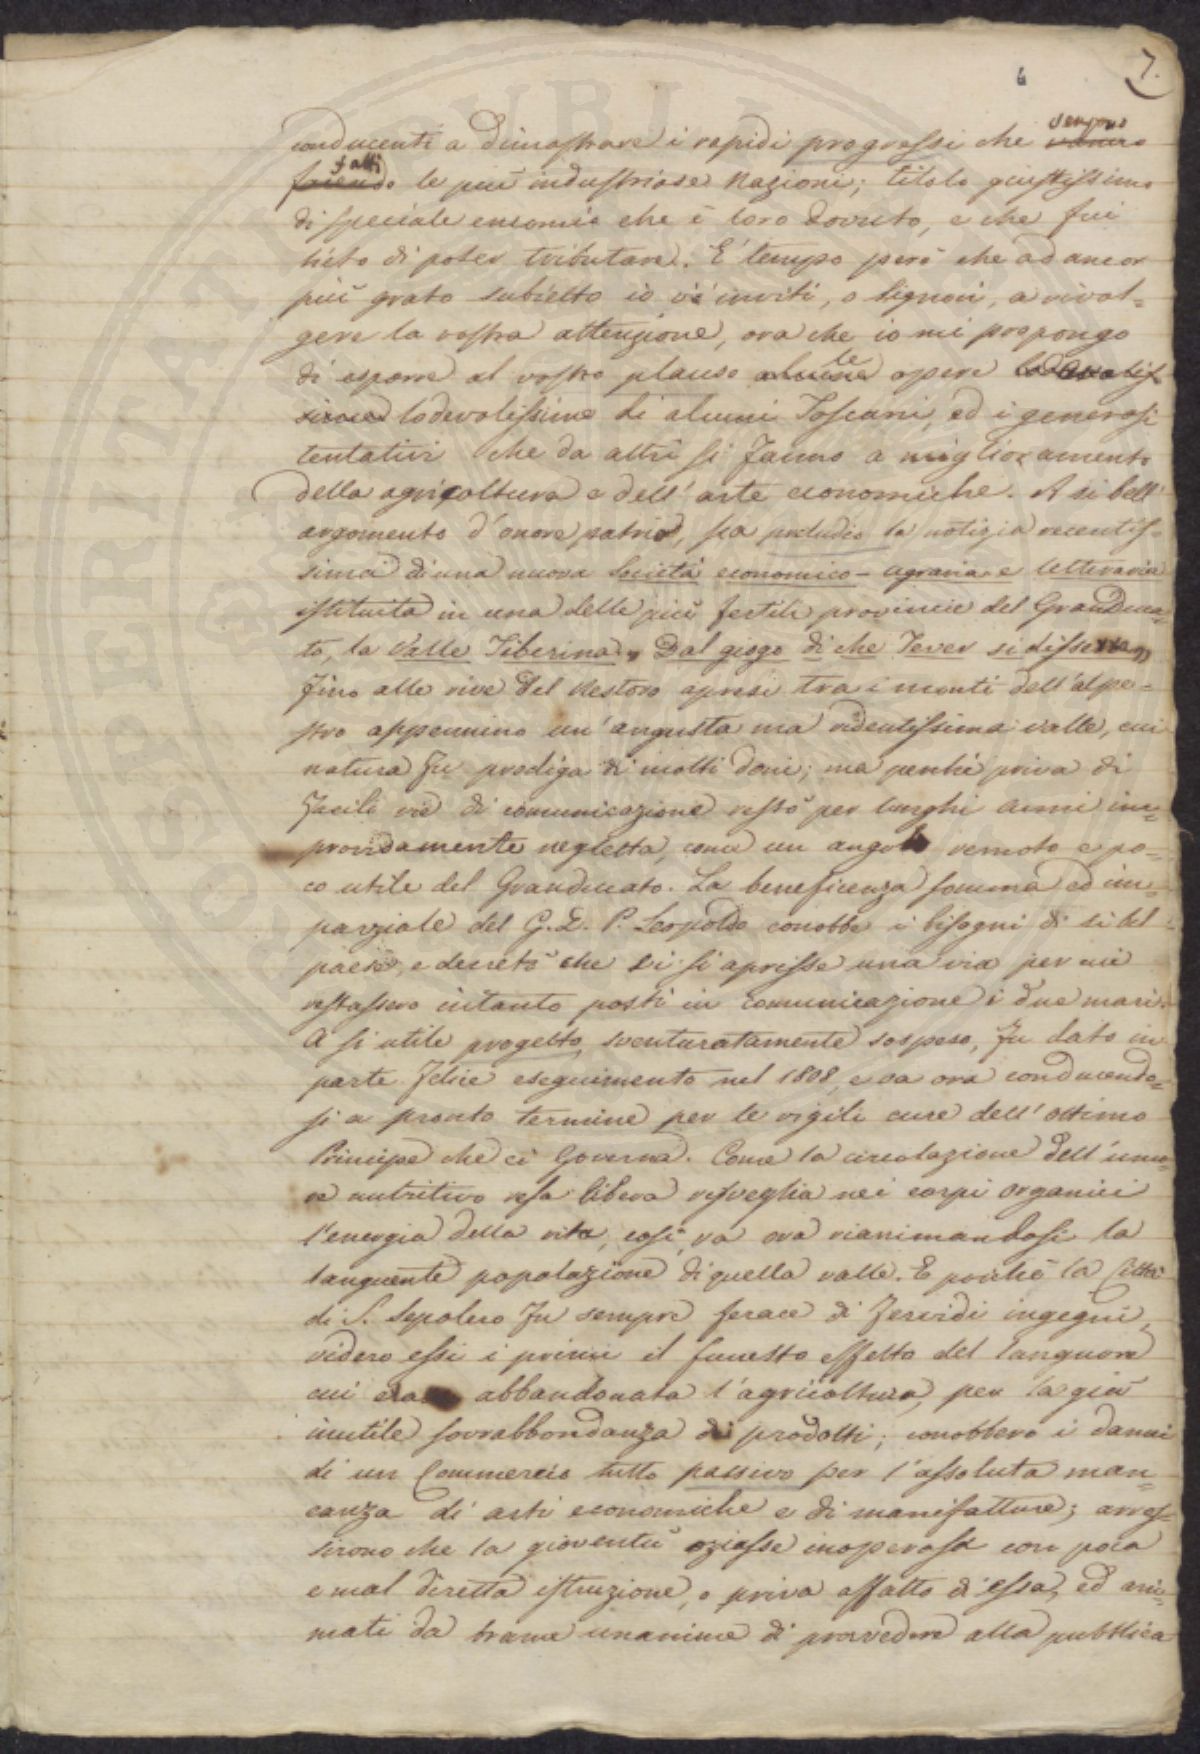 6 7.
conducenti a dimostrare i rapidi progressi che sempre
fatti le più industriose Nazioni; titolo giustissimo
di speciale encomio che è loro dovuto, e che fui
lieto di poter tributare. È tempo però che ad ancor
più grato subietto io vi inviti, o Signori, a rivol=
gere la vostra attenzione, ora che io mi propongo
di esporre al vostro plauso le opere lodevolis
sime lodevolissime di alcuni Toscani, ed i generosi
tentativi che da altri si fanno a miglioramento
della agricoltura e dell'arte economiche. A si bell'
argomento d'onore patrio, sia preludio la notizia recentis=
sima di una nuova Società economico-agraria e letteraria
istituita in una delle più fertili provincie del Granduca=
to, la Valle Tiberina. Dal giogo di che Tever si disserra
fino alle rive del Nestoro apresi tra i monti dell'alpe=
stro appennino un'angusta ma ridentissima valle, cui
natura fu prodiga di molti doni; ma perché priva di
facili vie di comunicazione restò per lunghi anni im=
provvidamente negletta, come un angolo remoto e po=
co utile del Granducato. La beneficenza somma ed im=
parziale del G. D. P. Leopoldo conobbe i bisogni di si bel
paese, e decretò che vi si aprisse una via per cui
restassero intanto posti in comunicazione i due mari.
A si utile progetto, sventuratamente sospeso, fu dato in
parte felice eseguimento nel 1808, e va ora conducendo=
si a pronto termine per le vigili cure dell'ottimo
Principe che ci Governa. Come la circolazione dell'umo=
re nutritivo resa libera risveglia nei corpi organici
l'energia della vita, così va ora rianimandosi la
languente popolazione di quella valle. E poiché la Città
di S. Sepolcro fu sempre ferace di fervidi ingegni,
videro essi i primi il funesto effetto del languore
cui era abbandonata l'agricoltura, per la già
inutile sovrabbondanza di prodotti; conobbero i danni
di un Commercio tutto passivo per l'assoluta man=
canza di arti economiche e di manifatture; arros=
sirono che la gioventù oziasse inoperosa con poca
e mal diretta istruzione, o priva affatto di essa, ed ani=
mati da brama unanime di provvedere alla pubblica